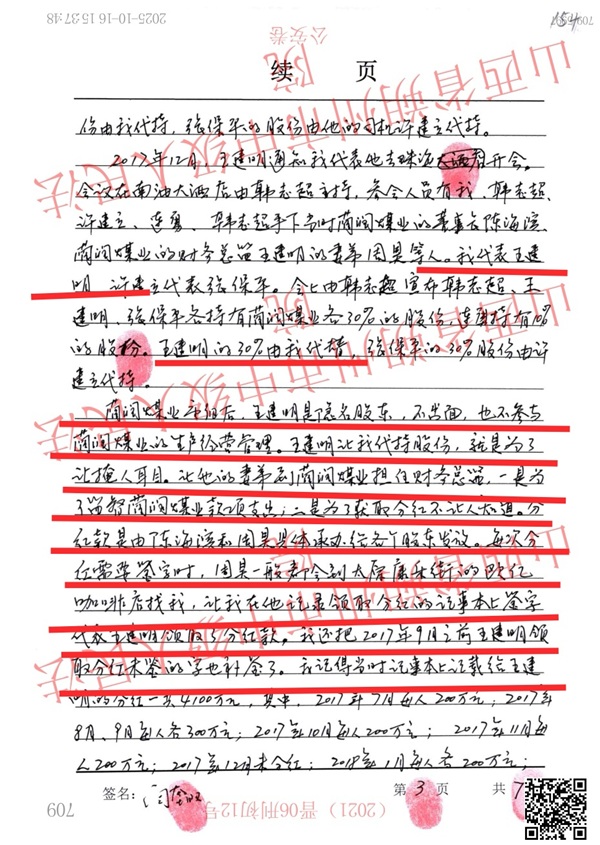 2025-10-16 15:37:48
154
公安卷
山西省朔州市中级人民法院
续 页
份由我代持，张保平的股份由他的司机许建立代持。
2017年12月，王建明通知我代表他去珠海大酒店开会。
会议在南油大酒店由韩志超主持，参会人员有我、韩志超、
许建立、连勇、韩志超手下当时蔺润煤业的董事长陈海滨、
蔺润煤业的财务总监王建明的妻弟周昊等人。我代表王建
明，许建立代表张保平。会上由韩志超宣布韩志超、王
建明、张保平各持有蔺润煤业各30%的股份，连勇持有10%
的股份。王建明的30%由我代持，张保平的30%股份由许
建立代持。
蔺润煤业重组后，王建明是隐名股东，不出面，也不参与
蔺润煤业的生产经营管理。王建明让我代持股份，就是为了
让掩人耳目。让他的妻弟到蔺润煤业担任财务总监，一是为
了监督蔺润煤业款项支出；二是为了获取分红不让人知道。分
红款是由陈海滨和周昊具体承办给各个股东发放。每次分
红需要签字时，周昊一般都会到太原康乐街的欧亿
咖啡店找我，让我在他记录领取分红的记事本上签字
代表王建明领取了分红款。我还把2017年9月之前王建明领
取分红未签的字也补签了。我记得当时记事本上记载给王建
明的分红一共4100万元，其中，2017年7月每人200万元；2017年
8月、9月每人各300万元；2017年10月每人200万元；2017年11月每
人200万元；2017年12月未分红；2018年1月每人各200万元；
签名：
第 3 页
共 7
709
（2021）晋06刑初12号
山西省朔州市中级人民法院